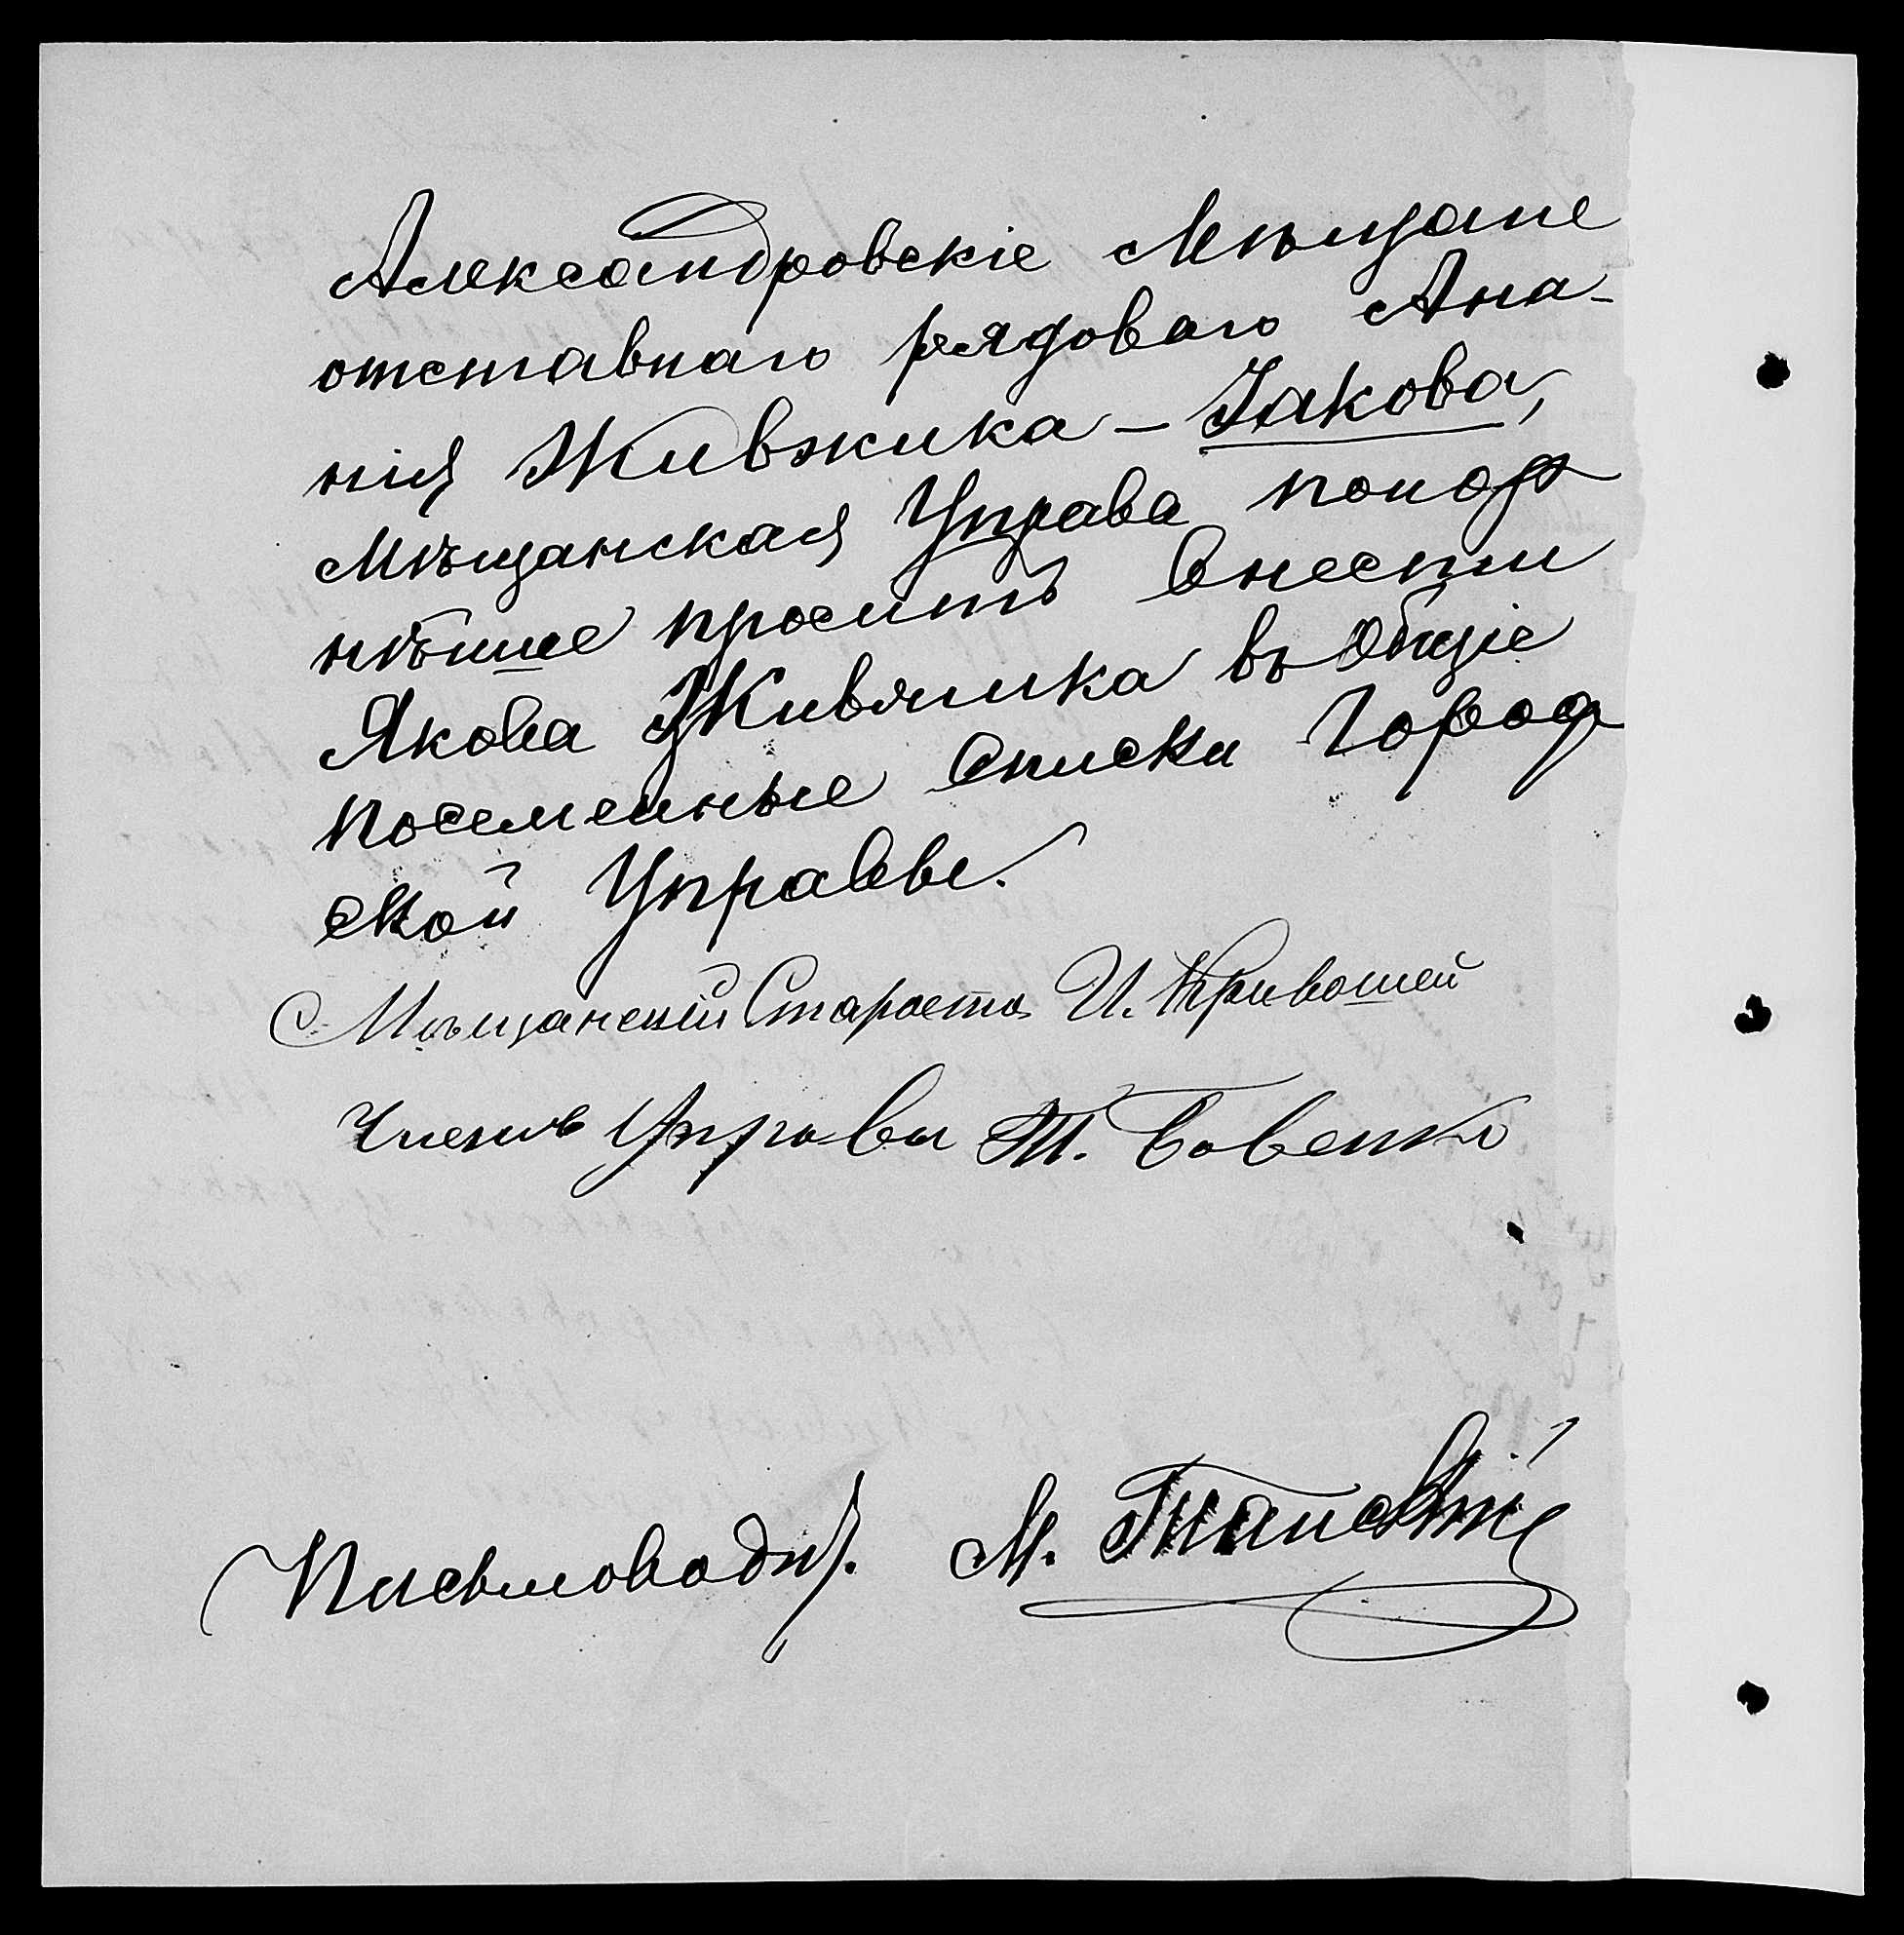 Александровскіе Мѣщане
отставнаго рядоваго Ана-
нія Живжика - Іакова,
Мѣщанская Управа покор
нѣише проситъ внести
Якова Живжика въ общіе
посемейные списки Город
ской Управы.
Мѣщанскій Староста И. Кривошей
Членъ Управы Т. Бовенко
Письмовод. М.